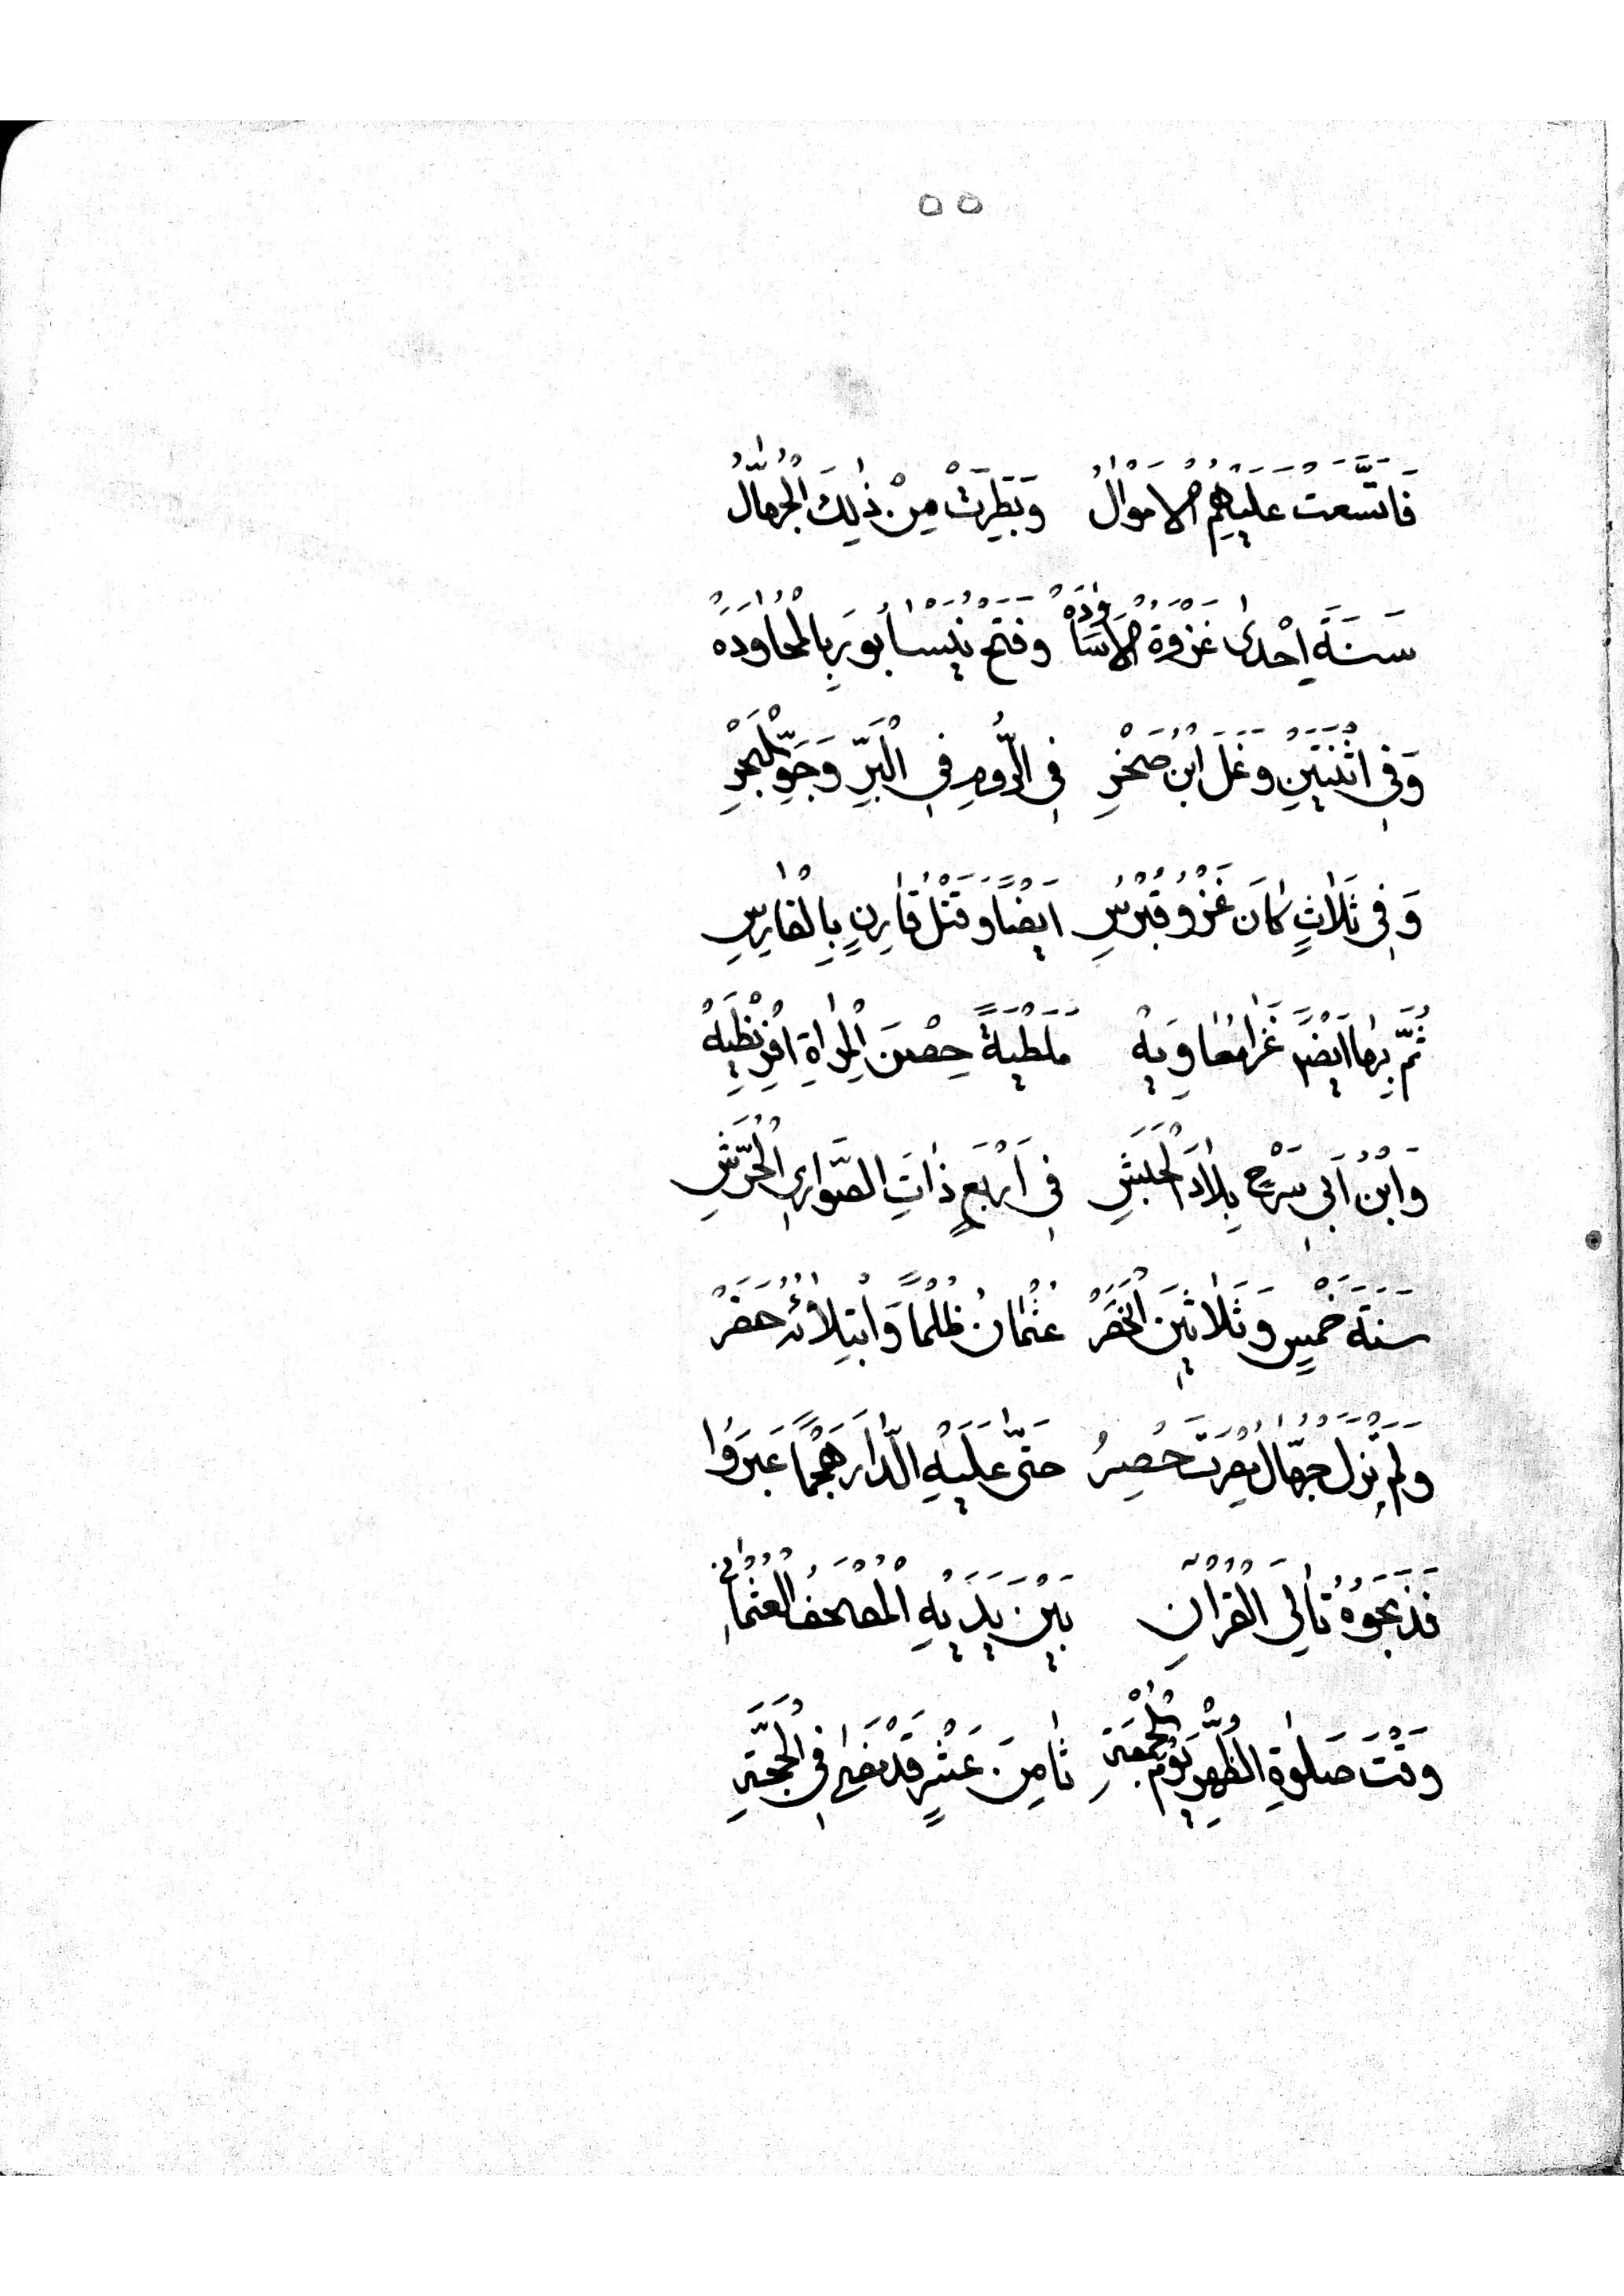 ٥٥
فَاتَّسَعَتْ عَلَيْهِمُ الْاَمْوَالُ وَبَطِرَتْ مِنْ ذٰلِكَ الْجُهَّالُ
سَنَةَ اِحْدٰى غَزْوَةُ الْاَسَاوِدَهْ وَفَتْحُ نَيْسَابُورَ بِالْمُعَاوَدَهْ
وَفِي اثْنَتَيْنِ وَغَلَ ابْنُ صَخْرِ فِي الرُّومِ فِي الْبَرِّ وَجَوِّ الْبَحْرِ
وَفِي ثَلَاثٍ كَانَ غَزْوُ قُبْرُسِ اَيْضًا وَقَتْلُ قَارِنٍ بِالْفَارِسِ
ثُمَّ بِهَا اَيْضًا غَزَا مُعَاوِيَهْ مَلَطْيَةً حِصْنَ الْمِرْاَةِ اِفْرِنْطِيَهْ
وَابْنُ اَبِي سَرْحٍ بِلَادَ الْحَبَشِ فِي اَرْبَعٍ ذَاتِ الصَّوَارِي الْحُرَّشِ
سَنَةَ خَمْسٍ وَثَلَاثِينَ عُثْمَانُ ظُلْمًا وَابْتِلَاؤُهُ حَضَرْ
وَلَمْ يَزَلْ جُهَّالُ حُصِرُ حَتّٰى عَلَيْهِ الدَّارَ هَجْمًا عَبَرُوا
فَذَبَحُوهُ تَالِيَ الْقُرْاٰنِ بَيْنَ يَدَيْهِ الْمُصْحَفُ الْعُثْمَانِي
وَقْتَ صَلٰوةِ الظُّهْرِ يَوْمَ الْجُمْعَةِ ثَامِنَ عَشْرٍ قَدْ مَضٰى فِي الْحَجَّةِ